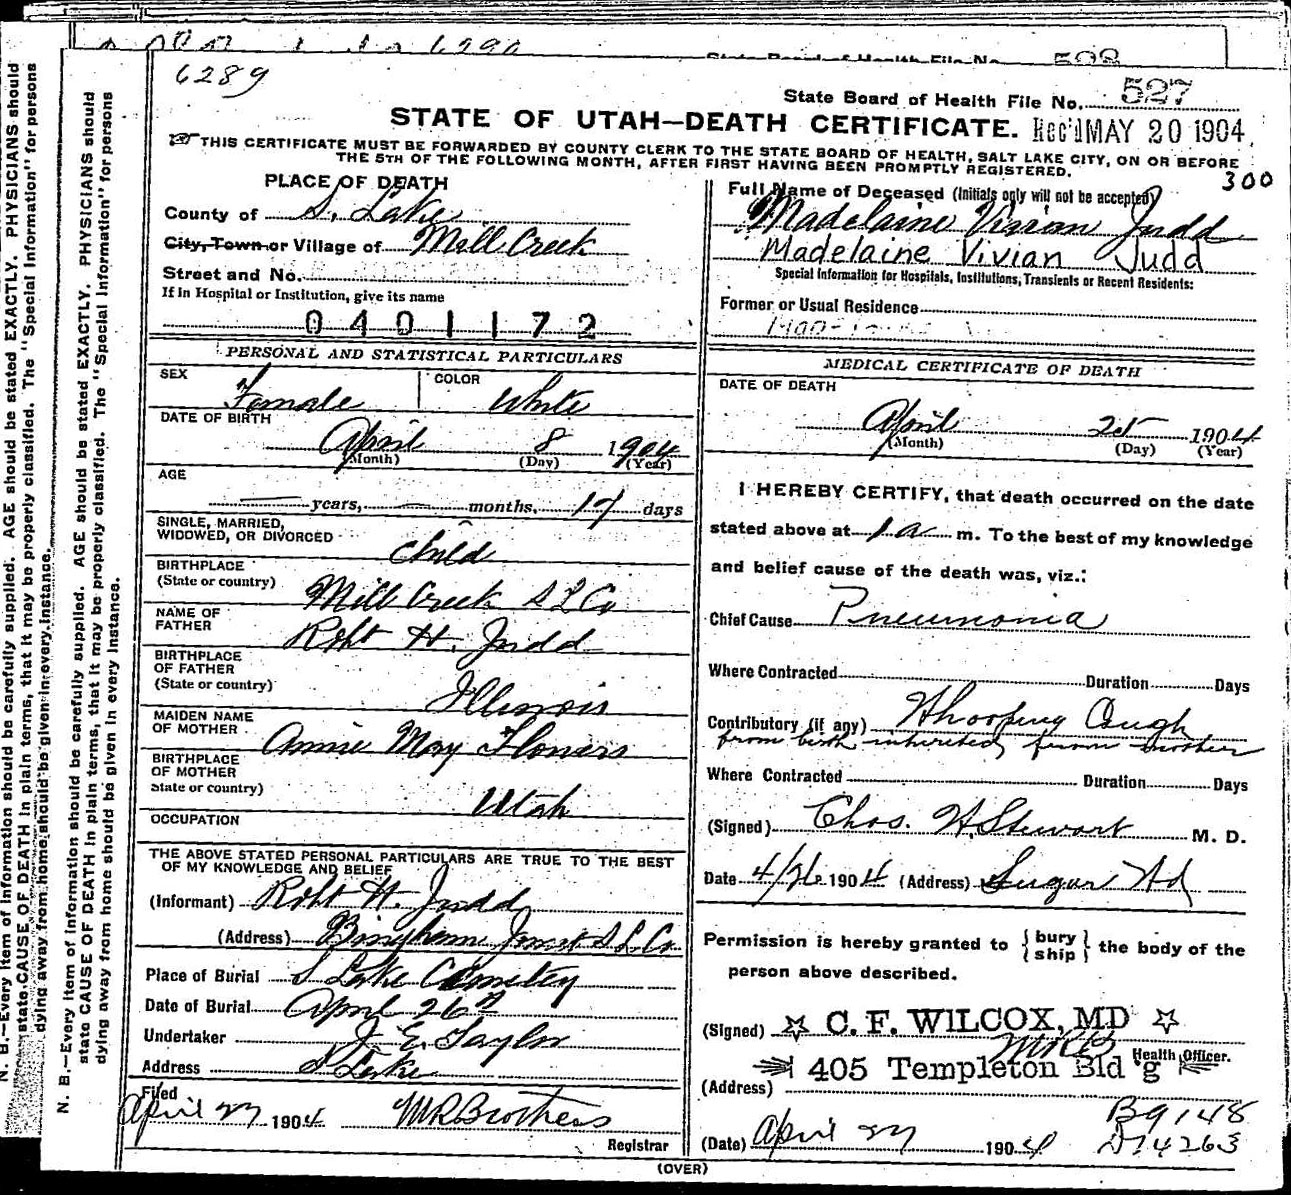 6289
State Board of Health File No. 527
STATE OF UTAH—DEATH CERTIFICATE. Rec'd MAY 20 1904
THIS CERTIFICATE MUST BE FORWARDED BY COUNTY CLERK TO THE STATE BOARD OF HEALTH, SALT LAKE CITY, ON OR BEFORE
THE 5TH OF THE FOLLOWING MONTH, AFTER FIRST HAVING BEEN PROMPTLY REGISTERED.
300
PLACE OF DEATH
County of S. Lake
City, Town or Village of Mill Creek
Street and No.
If in Hospital or Institution, give its name
0401172
PERSONAL AND STATISTICAL PARTICULARS
SEX Female COLOR White
DATE OF BIRTH
April 8 1904
(Month) (Day) (Year)
AGE
— years, — months, 17 days
SINGLE, MARRIED,
WIDOWED, OR DIVORCED Child
BIRTHPLACE
(State or country) Mill Creek S L Co
NAME OF
FATHER Robt H. Judd
BIRTHPLACE
OF FATHER
(State or country) Illinois
MAIDEN NAME
OF MOTHER Annie May Flowers
BIRTHPLACE
OF MOTHER
State or country) Utah
OCCUPATION
THE ABOVE STATED PERSONAL PARTICULARS ARE TRUE TO THE BEST
OF MY KNOWLEDGE AND BELIEF
(Informant) Robt H. Judd
(Address) Bingham Junct S L Co.
Place of Burial S Lake Cemetery
Date of Burial April 26th
Undertaker J. E. Taylor
Address S Lake
Filed
April 27 1904 M R Brothers
Registrar
Full Name of Deceased (Initials only will not be accepted)
Madelaine Vivian Judd
Madelaine Vivian Judd
Special Information for Hospitals, Institutions, Transients or Recent Residents:
Former or Usual Residence
MEDICAL CERTIFICATE OF DEATH
DATE OF DEATH
April 25 1904
(Month) (Day) (Year)
I HEREBY CERTIFY, that death occurred on the date
stated above at 1 a m. To the best of my knowledge
and belief cause of the death was, viz.:
Chief Cause Pneumonia
Where Contracted Duration Days
Contributory (if any) Whooping Cough
from birth inherited from mother
Where Contracted Duration Days
(Signed) Chas. H. Stewart M. D.
Date 4/26 1904 (Address) Sugar Hd
Permission is hereby granted to {bury ship} the body of the
person above described.
(Signed) C. F. WILCOX, MD
MRB Health Officer.
(Address) 405 Templeton Bld'g
B9148
(Date) April 27 1904 D14263
(OVER)
N. B.—Every item of information should be carefully supplied. AGE should be stated EXACTLY. PHYSICIANS should
state CAUSE OF DEATH in plain terms, that it may be properly classified. The "Special Information" for persons
dying away from home should be given in every instance.
N. B.—Every item of information should be carefully supplied. AGE should be stated EXACTLY. PHYSICIANS should
state CAUSE OF DEATH in plain terms, that it may be properly classified. The "Special Information" for persons
dying away from home should be given in every instance.